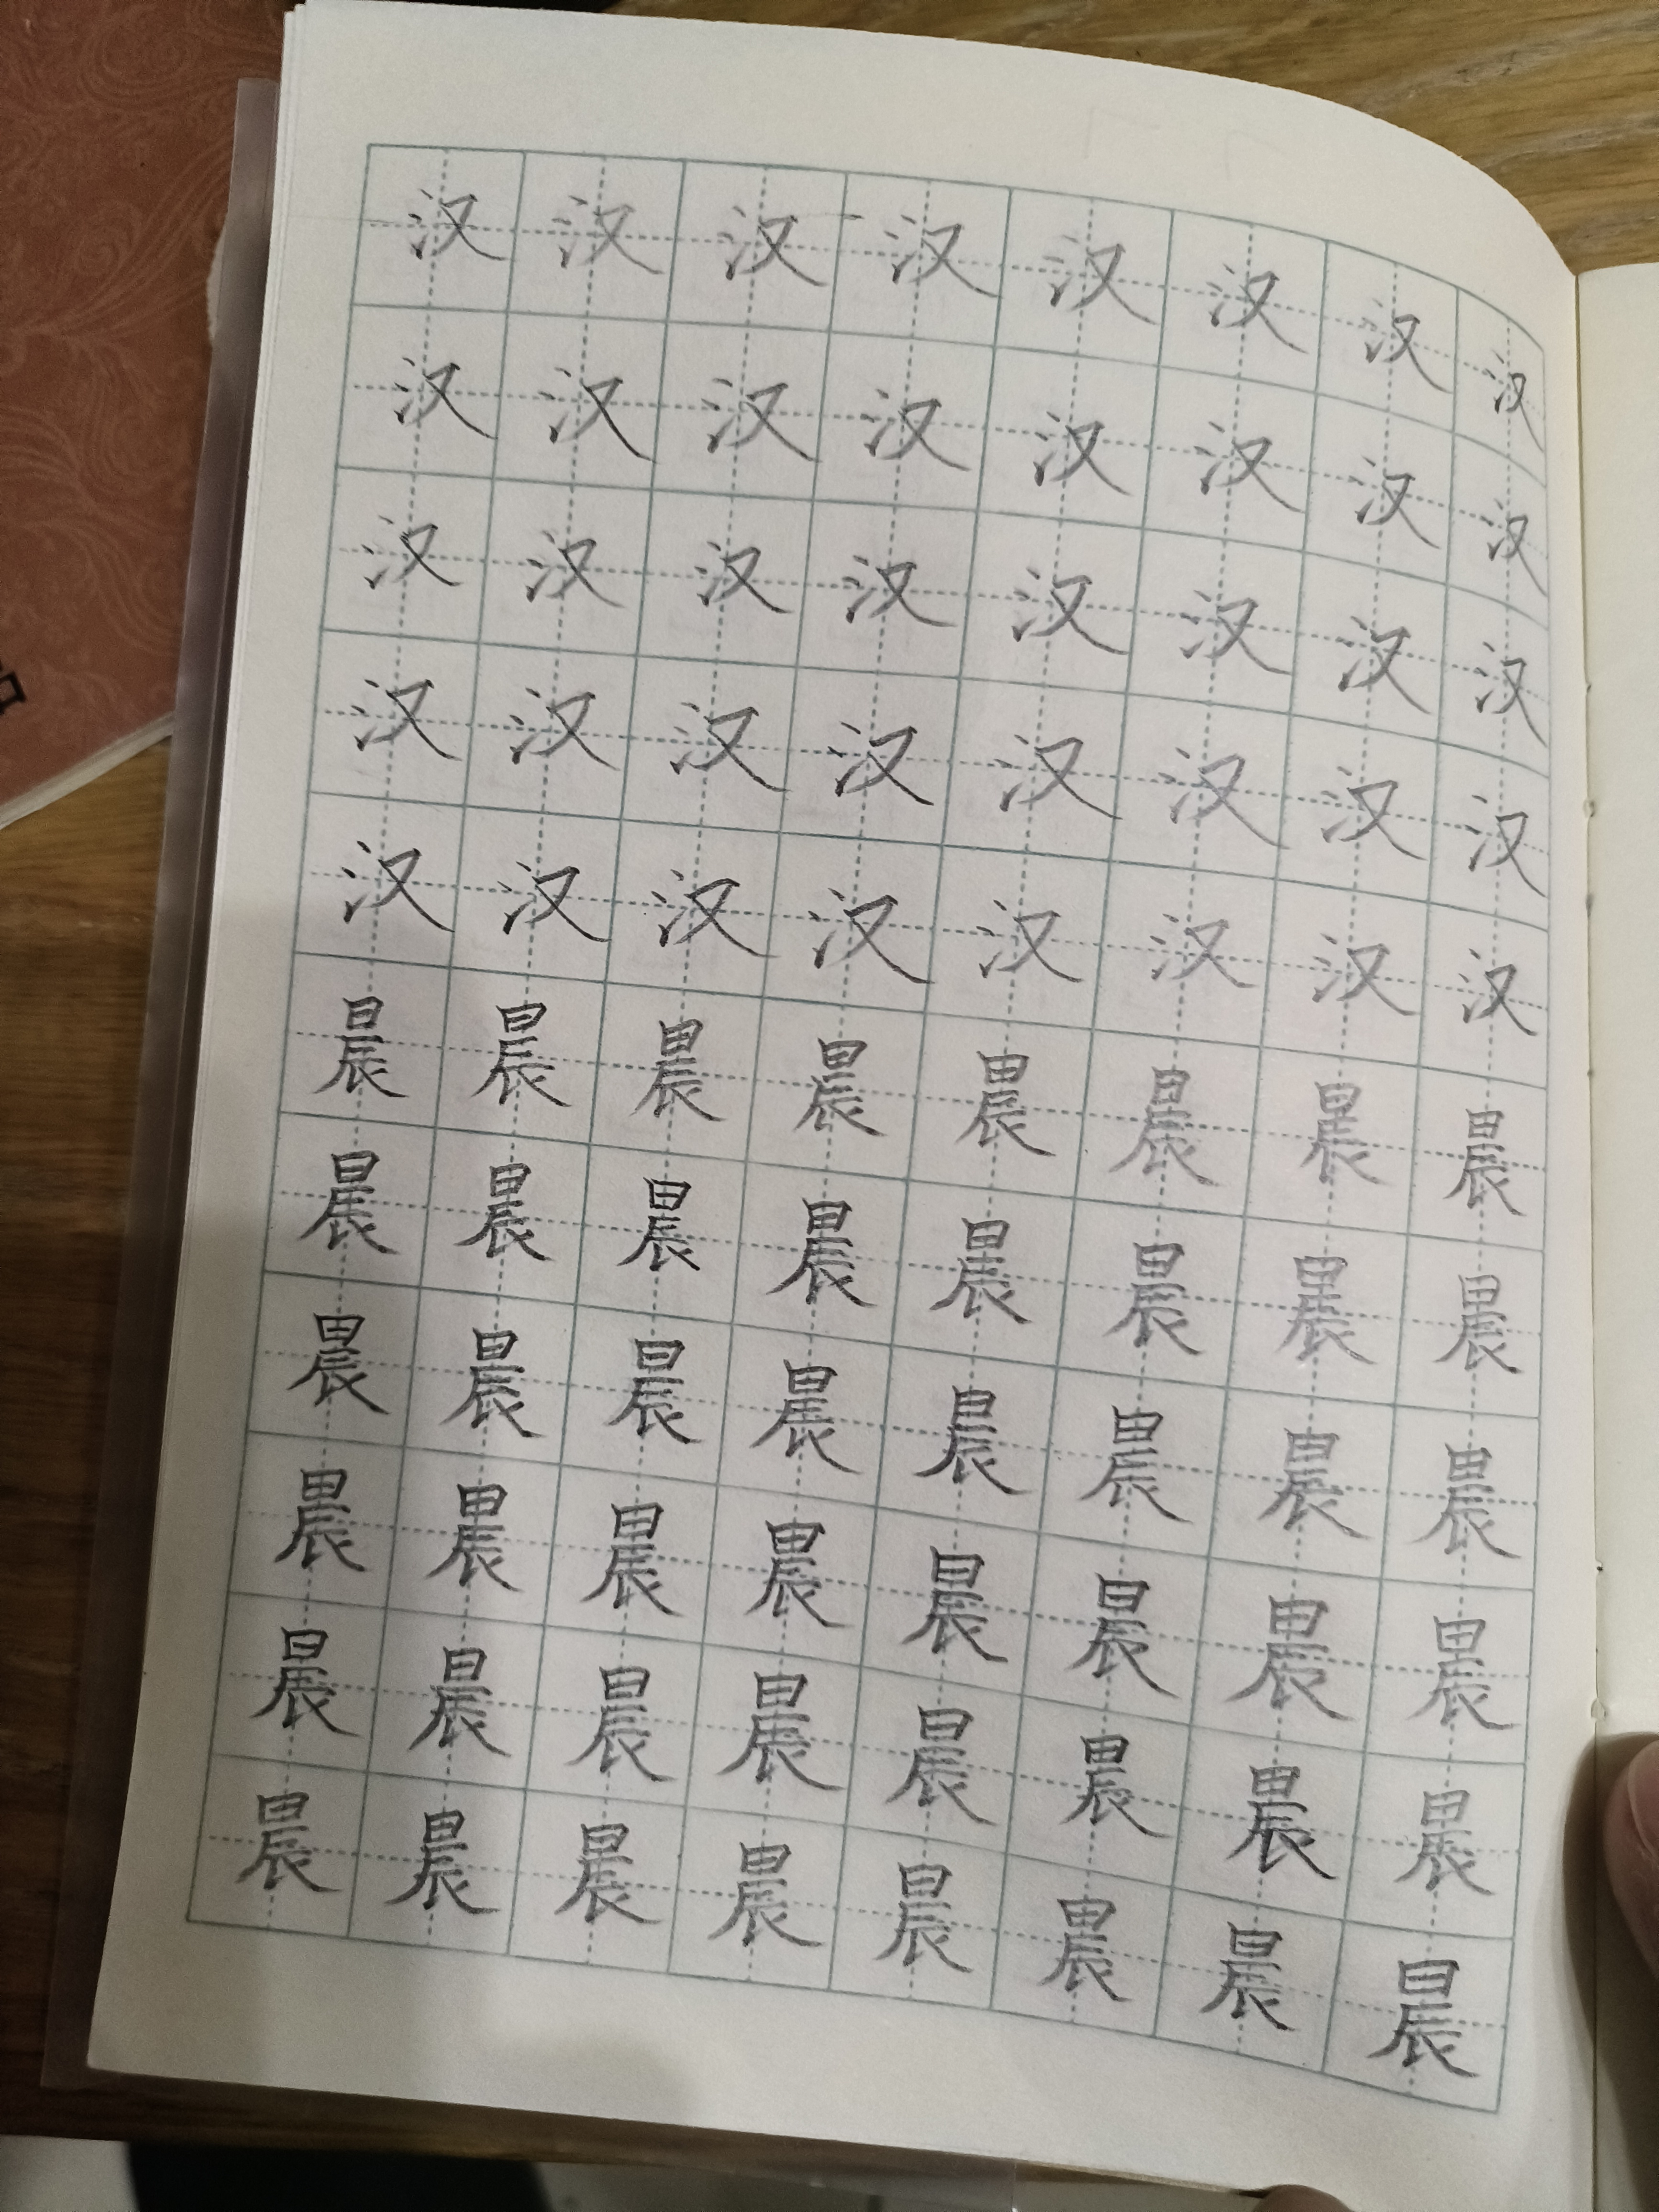 汉汉汉汉汉汉汉汉
汉汉汉汉汉汉汉汉
汉汉汉汉汉汉汉汉
汉汉汉汉汉汉汉汉
汉汉汉汉汉汉汉汉
晨晨晨晨晨晨晨晨
晨晨晨晨晨晨晨晨
晨晨晨晨晨晨晨晨
晨晨晨晨晨晨晨晨
晨晨晨晨晨晨晨晨
晨晨晨晨晨晨晨晨